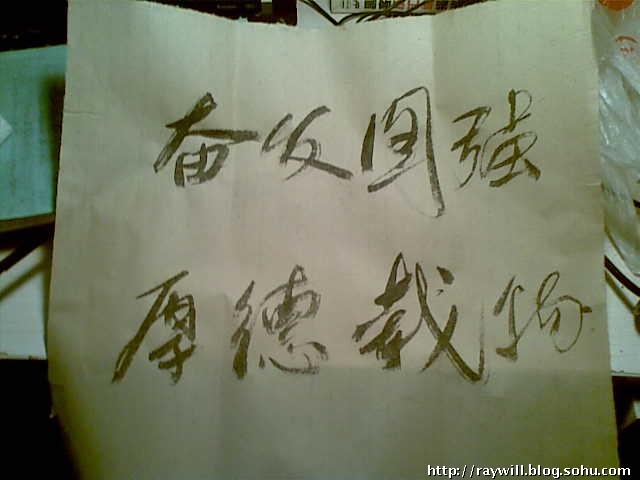 奋发图强
厚德载物
http://raywill.blog.sohu.com